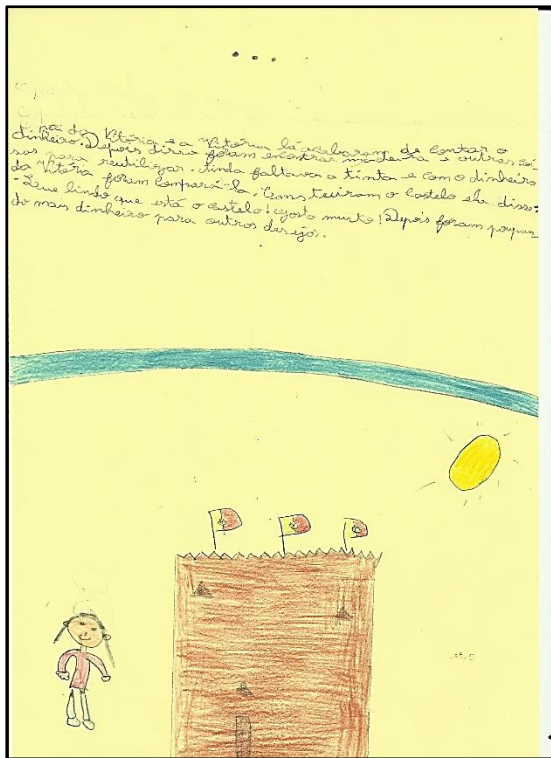 ...
O pai da Vitória e a Vitória lá acabaram de contar o
dinheiro. Depois disso foram encontrar madeira e outras coi-
sas para reutilizar. Ainda faltava a tinta e com o dinheiro
da Vitória foram comprá-la. Construiram o castelo ela disse:
- Que lindo que está o castelo! Gosto muito! Depois foram poupan-
do mais dinheiro para outros desejos.